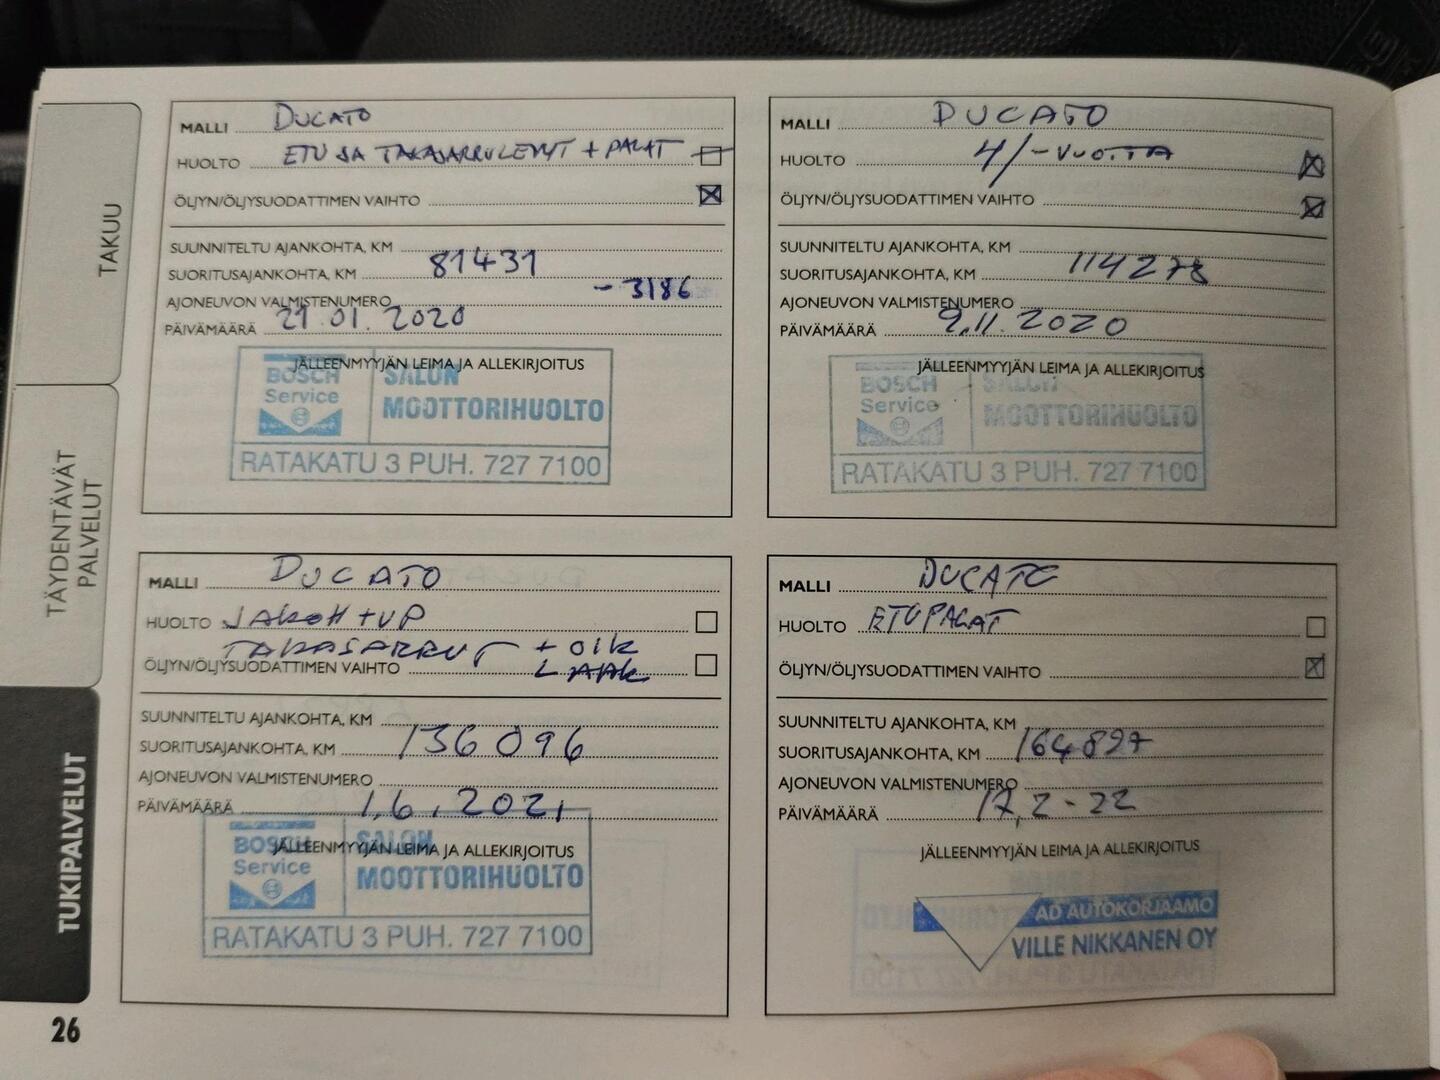 TAKUU
TÄYDENTÄVÄT
PALVELUT
TUKIPALVELUT
MALLI DUCATO
HUOLTO ETU JA TAKAJARRULEVYT + PALAT
ÖLJYN/ÖLJYSUODATTIMEN VAIHTO
SUUNNITELTU AJANKOHTA, KM
SUORITUSAJANKOHTA, KM 81431
AJONEUVON VALMISTENUMERO -3186
PÄIVÄMÄÄRÄ 21.01.2020
JÄLLEENMYYJÄN LEIMA JA ALLEKIRJOITUS
BOSCH SALON
Service MOOTTORIHUOLTO
RATAKATU 3 PUH. 727 7100
MALLI DUCATO
HUOLTO 4/-VUOTTA
ÖLJYN/ÖLJYSUODATTIMEN VAIHTO
SUUNNITELTU AJANKOHTA, KM
SUORITUSAJANKOHTA, KM 114278
AJONEUVON VALMISTENUMERO
PÄIVÄMÄÄRÄ 9.11.2020
JÄLLEENMYYJÄN LEIMA JA ALLEKIRJOITUS
BOSCH SALON
Service MOOTTORIHUOLTO
RATAKATU 3 PUH. 727 7100
MALLI DUCATO
HUOLTO JAKOH + VP
TAKAJARRUT + OIK
ÖLJYN/ÖLJYSUODATTIMEN VAIHTO
SUUNNITELTU AJANKOHTA, KM
SUORITUSAJANKOHTA, KM 136096
AJONEUVON VALMISTENUMERO
PÄIVÄMÄÄRÄ 1.6.2021
JÄLLEENMYYJÄN LEIMA JA ALLEKIRJOITUS
BOSCH SALON
Service MOOTTORIHUOLTO
RATAKATU 3 PUH. 727 7100
MALLI DUCATO
HUOLTO ETUPALAT
ÖLJYN/ÖLJYSUODATTIMEN VAIHTO
SUUNNITELTU AJANKOHTA, KM
SUORITUSAJANKOHTA, KM 164897
AJONEUVON VALMISTENUMERO
PÄIVÄMÄÄRÄ 17.2-22
JÄLLEENMYYJÄN LEIMA JA ALLEKIRJOITUS
AD AUTOKORJAAMO
VILLE NIKKANEN OY
26